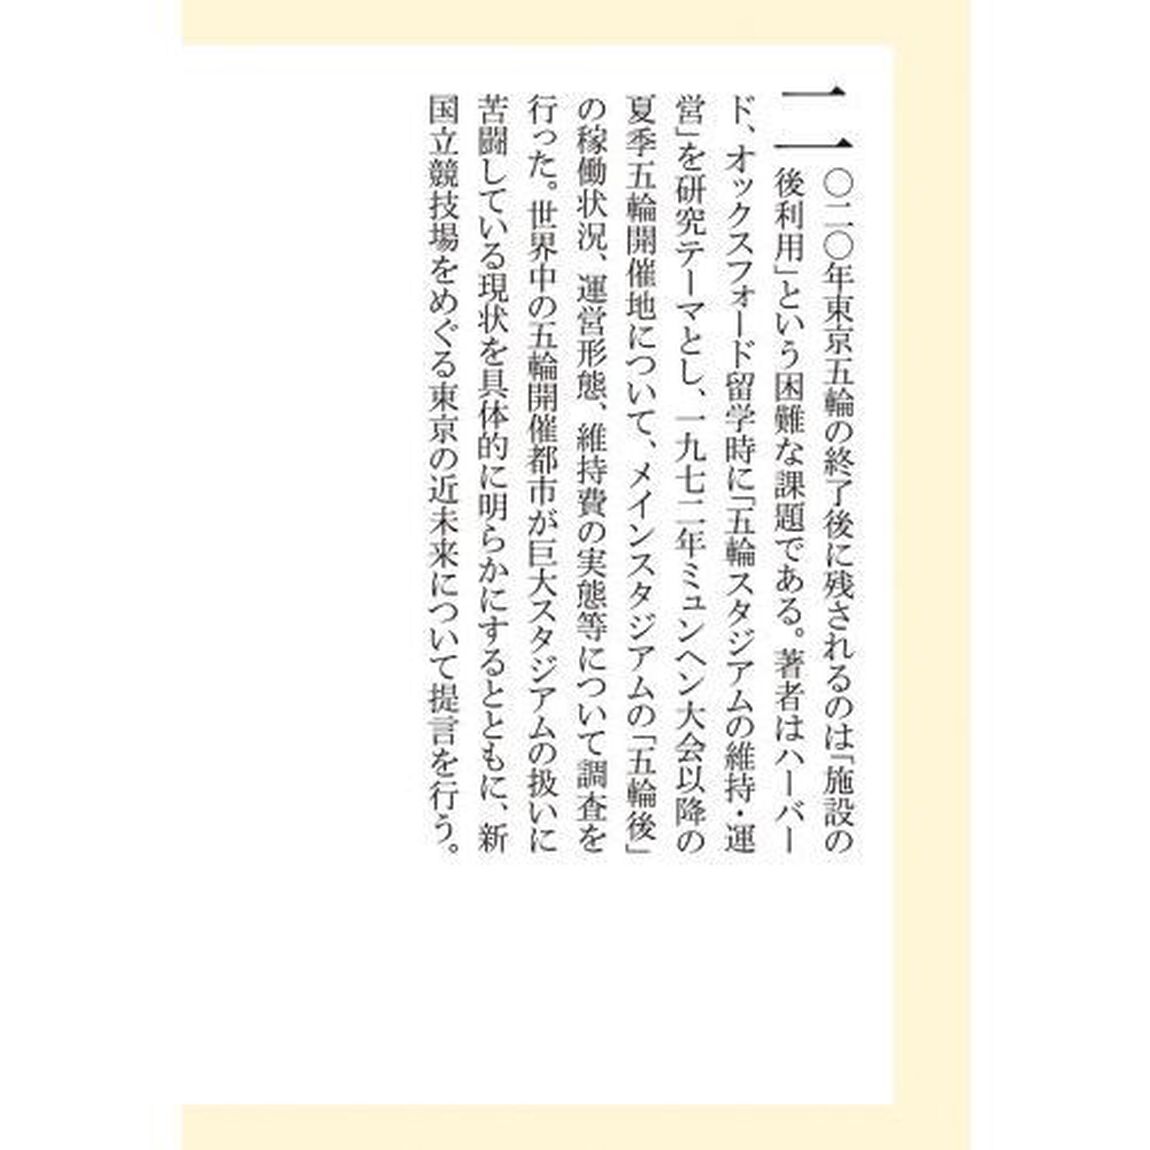 二〇二〇年東京五輪の終了後に残されるのは「施設の
後利用」という困難な課題である。著者はハーバー
ド、オックスフォード留学時に「五輪スタジアムの維持・運
営」を研究テーマとし、一九七二年ミュンヘン大会以降の
夏季五輪開催地について、メインスタジアムの「五輪後」
の稼働状況、運営形態、維持費の実態等について調査を
行った。世界中の五輪開催都市が巨大スタジアムの扱いに
苦闘している現状を具体的に明らかにするとともに、新
国立競技場をめぐる東京の近未来について提言を行う。